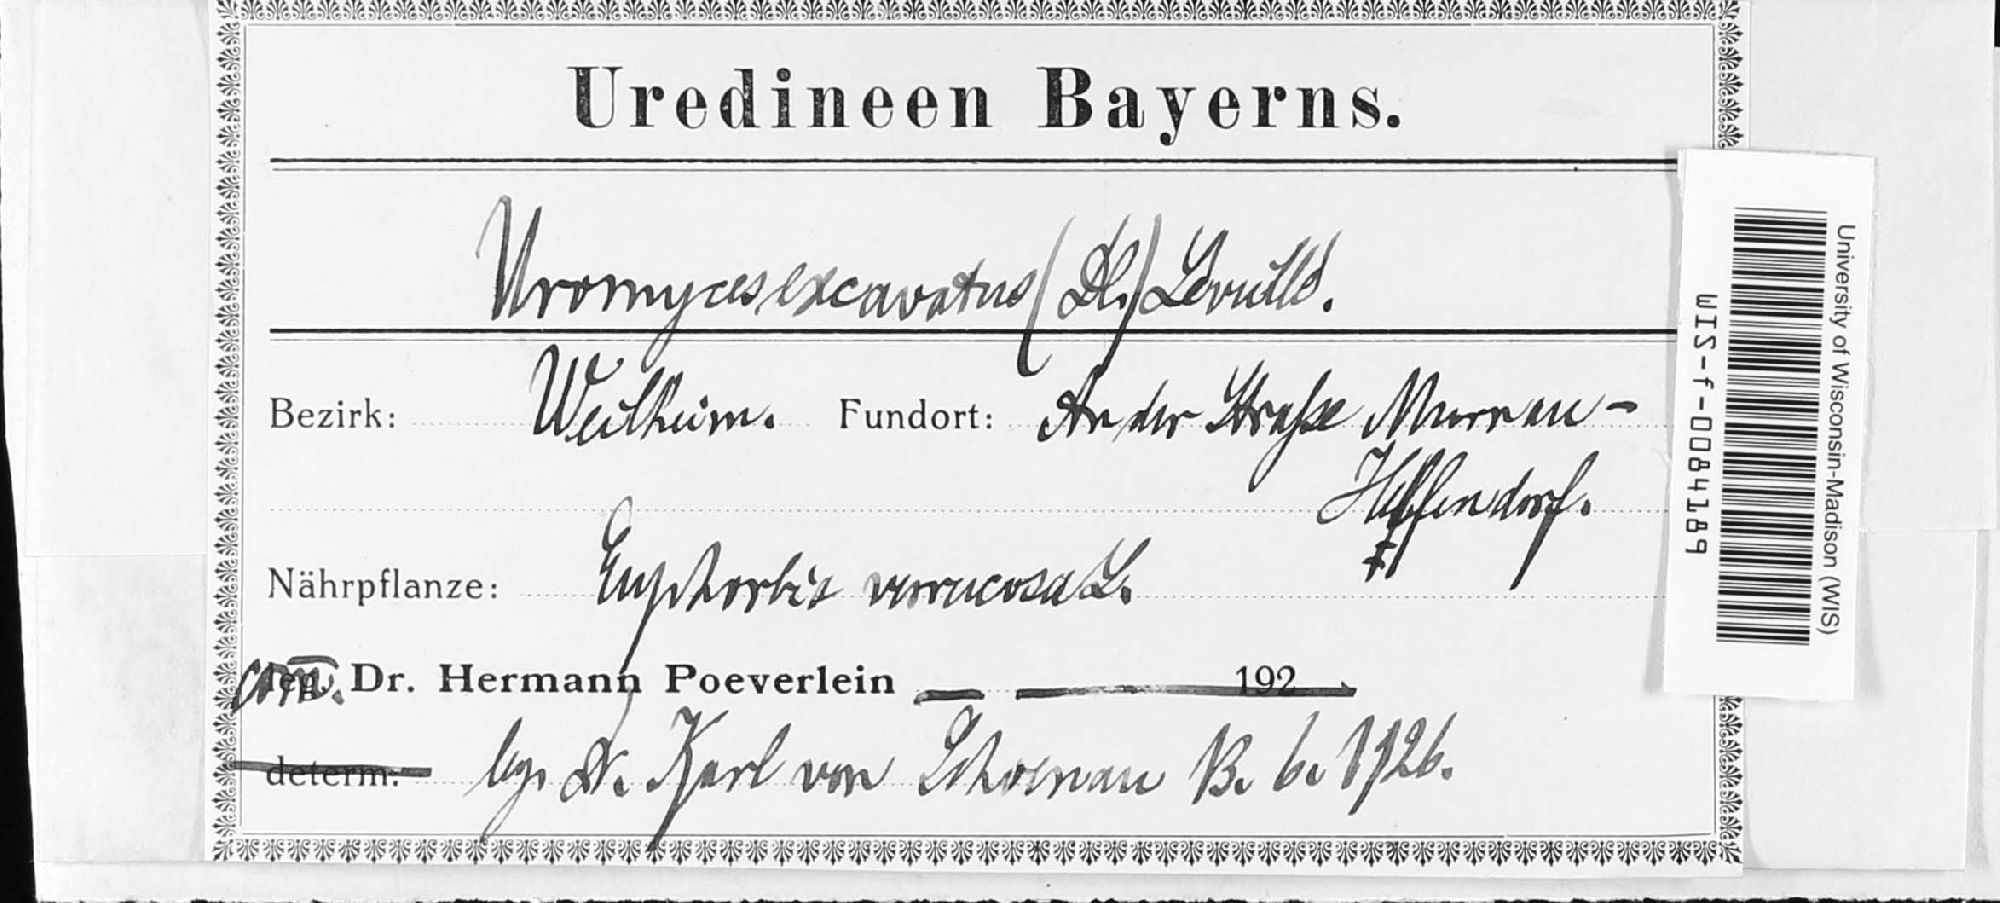 Uredineen Bayerns.
Uromyces excavatus (Dl.) Léveillé.
Bezirk: Weilheim. Fundort: An der Straße Murnau-
Hoffendorf.
Nährpflanze: Euphorbia verrucosa L.
com. Dr. Hermann Poeverlein 192
determ: leg. Dr. Karl von Schoenau 13. 6. 1926.
University of Wisconsin-Madison (WIS)
WIS-f-0084189